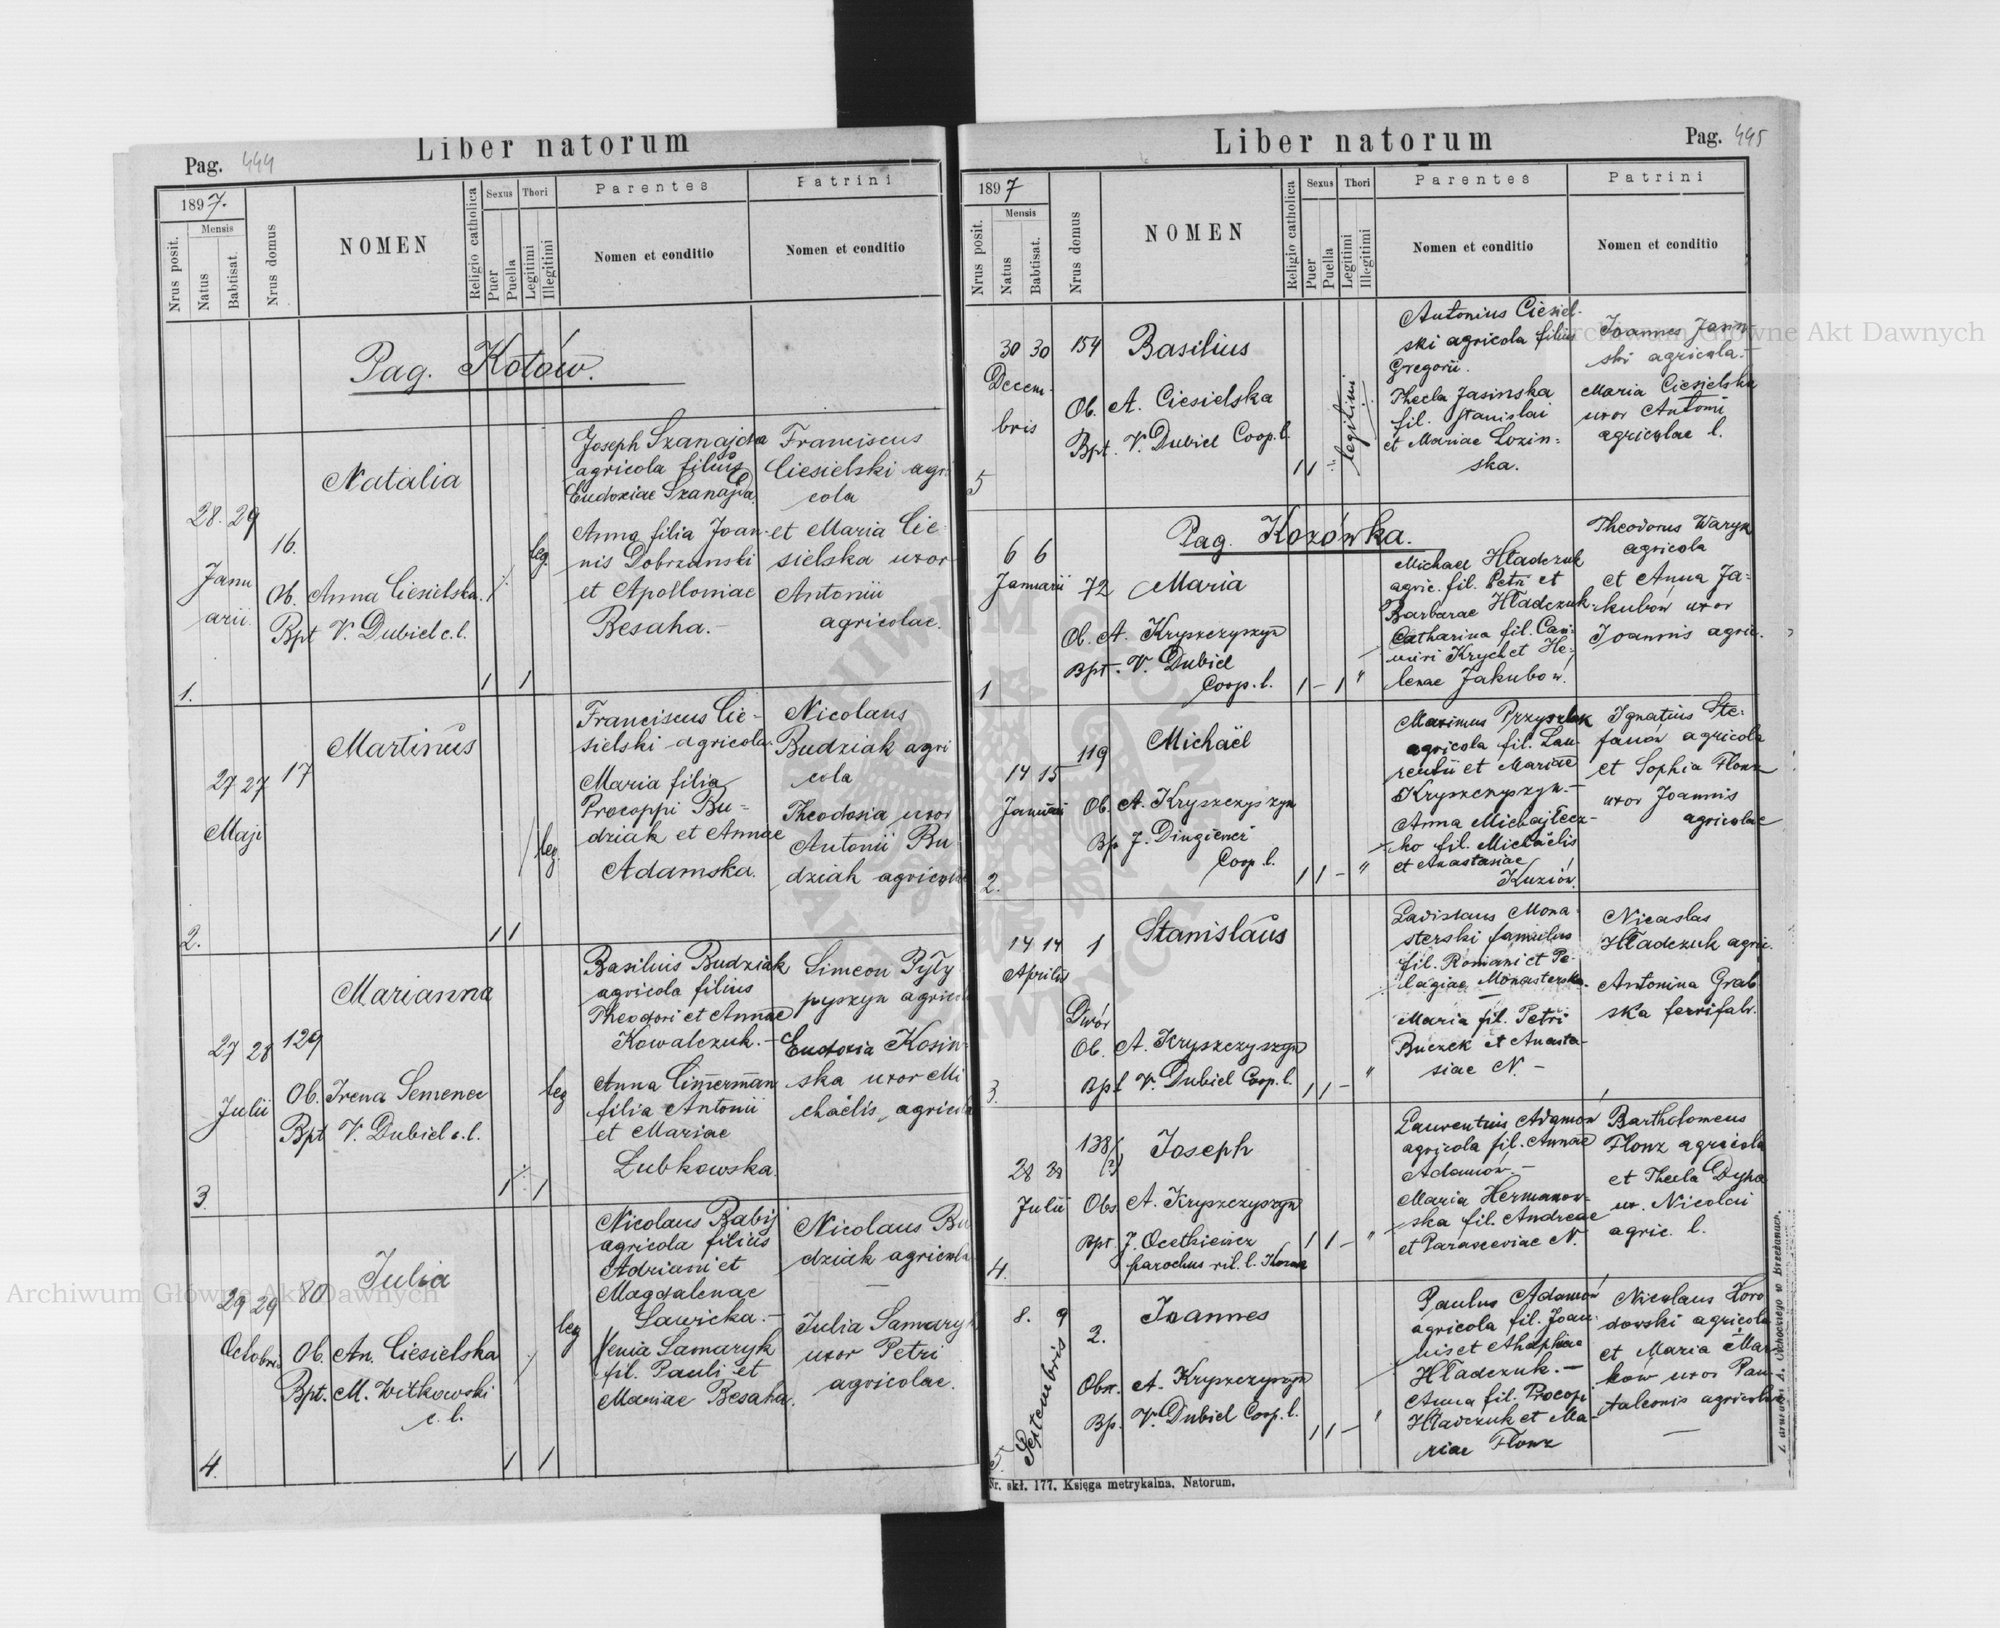 Liber natorum
Pag. 444
1897.
Nrus posit.
Mensis
Natus
Babtisat.
Nrus domus
NOMEN
Religio catholica
Sexus
Puer
Puella
Thori
Legitimi
Illegitimi
Parentes
Nomen et conditio
Patrini
Nomen et conditio
Pag. Kotów.
1.
28. 29
Janu
arii.
16.
Natalia
Ob. Anna Ciesielska.
Bpt V. Dubiel c. l.
1 1
leg.
Joseph Szanajda
agricola filius
Eudoxiae Szanajda.
Anna filia Joan-
nis Dobrzanski
et Apolloniae
Besaha.-
Franciscus
Ciesielski agri
cola
et Maria Cie-
sielska uxor
Antonii
agricolae.
2.
27 27
Maji
17
Martinus
1 1
leg.
Franciscus Cie-
sielski agricola.
Maria filia
Procoppi Bu-
dziak et Annae
Adamska.
Nicolaus
Budziak agri
cola
Theodosia uxor
Antonii Bu
dziak agricolae
3.
27 28
Julii
129
Marianna
Ob. Irena Semenec
Bpt V. Dubiel c. l.
1 1
leg
Basilius Budziak
agricola filius
Theodori et Annae
Kowalczuk.-
Anna Cimerman
filia Antonii
et Mariae
Łubkowska.
Simeon Pyły
pyszyn agricola
Eudoxia Kosin-
ska uxor Mi
chaëlis agricola
4.
29 29
Octobris
80
Julia
Ob. An. Ciesielska
Bpt. M. Witkowski
c. l.
1 1
leg
Nicolaus Babij
agricola filius
Adriani et
Magdalenae
Sawicka.-
Xenia Samaryk
fil. Pauli et
Mariae Besaha.
Nicolaus Bu
dziak agricola
Julia Samaryk
uxor Petri
agricolae.
Liber natorum
Pag. 445
1897
Nrus posit.
Mensis
Natus
Babtisat.
Nrus domus
NOMEN
Religio catholica
Sexus
Puer
Puella
Thori
Legitimi
Illegitimi
Parentes
Nomen et conditio
Patrini
Nomen et conditio
5
30 30
Decem-
bris
154
Basilius
Ob. A. Ciesielska
Bpt. V. Dubiel Coop. l.
1 1
legitimi
Antonius Ciesiel-
ski agricola filius
Gregorii.
Thecla Jasinska
fil. Stanislai
et Mariae Lozin-
ska.
Joannes Jasin
ski agricola.-
Maria Ciesielska
uxor Antonii
agricolae l.
Pag. Kozówka.
1
6 6
Januarii
72
Maria
Ob. A. Kryszczyszyn
Bpt. V. Dubiel
Coop. l.
1 - 1 "
Michael Hładczuk
agric. fil. Petri et
Barbarae Hładczuk.
Catharina fil. Casi-
miri Krych et He-
lenae Jakubow.
Theodorus Waryk
agricola
et Anna Ja-
kubów uxor
Joannis agric.
2.
14 15
Januarii
119
Michaël
Ob. A. Kryszczyszyn
Bp. J. Dingiewicz
Coop. l.
1 1 - "
Maximus Przyszlak
agricola fil. Lau-
rentii et Mariae
Kryszczyszyn.-
Anna Michajłecz-
ko fil. Michaëlis
et Anastasiae
Kuziów.
Ignatius Ste-
fanów agricola
et Sophia Flonz
uxor Joannis
agricolae
3.
14 14
Aprilis
1
Dwór
Stanislaus
Ob. A. Kryszczyszyn
Bpt V. Dubiel Coop. l.
1 1 - "
Ladislaus Mona-
sterski famulus
fil. Romani et Pe-
lagiae Monasterska.
Maria fil. Petri
Buczek et Anasta-
siae N. -
Nicolas
Hładczuk agric.
Antonina Grab
ska ferrifabr.
4.
28 28
Julii
138
(?)
Joseph
Obs. A. Kryszczyszyn
Bpt. J. Ocetkiewicz
parochus rit. l. Kozowa
1 1 - "
Laurentius Adamów
agricola fil. Annae
Adamów.-
Maria Hermanow-
ska fil. Andreae
et Parasceviae N.
Bartholomeus
Flonz agricola
et Thecla Dyha
ux. Nicolai
agric. l.
5.
8. 9
Septembris
2.
Joannes
Obst. A. Kryszczyszyn
Bp. V. Dubiel Coop. l.
1 1 - "
Paulus Adamów
agricola fil. Joan-
nis et Agaphiae
Hładczuk.-
Anna fil. Procopi
Hładczuk et Ma-
riae Flonz
Nicolaus Horo
dowski agricola
et Maria Mar-
ków uxor Pan-
taleonis agricolae
Nr. skł. 177. Księga metrykalna. Natorum.
Z drukarni A. Ochockiego w Brzeżanach.
Archiwum Główne Akt Dawnych
Archiwum Główne Akt Dawnych